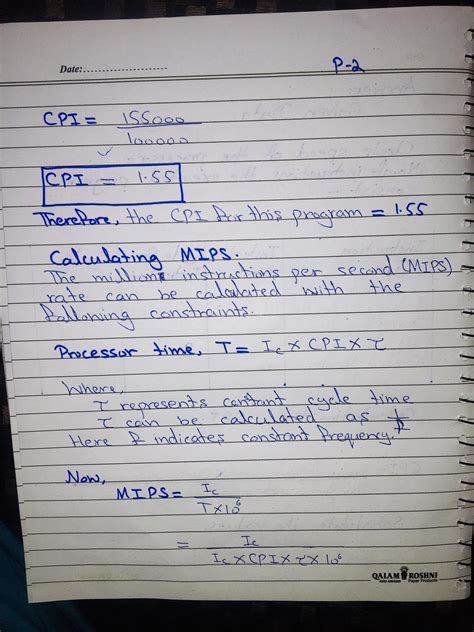 Date:........................
P-2
CPI = 155000
100000
CPI = 1.55
Therefore, the CPI for this program = 1.55
Calculating MIPS.
The millions instructions per second (MIPS)
rate can be calculated with the
following constraints.
Processor time, T = Ic × CPI × τ
Where,
τ represents constant cycle time
τ can be calculated as 1/f
Here f indicates constant frequency.
Now,
MIPS = Ic
T×10⁶
= Ic
Ic × CPI × τ × 10⁶
QALAM ROSHNI
Paper Products